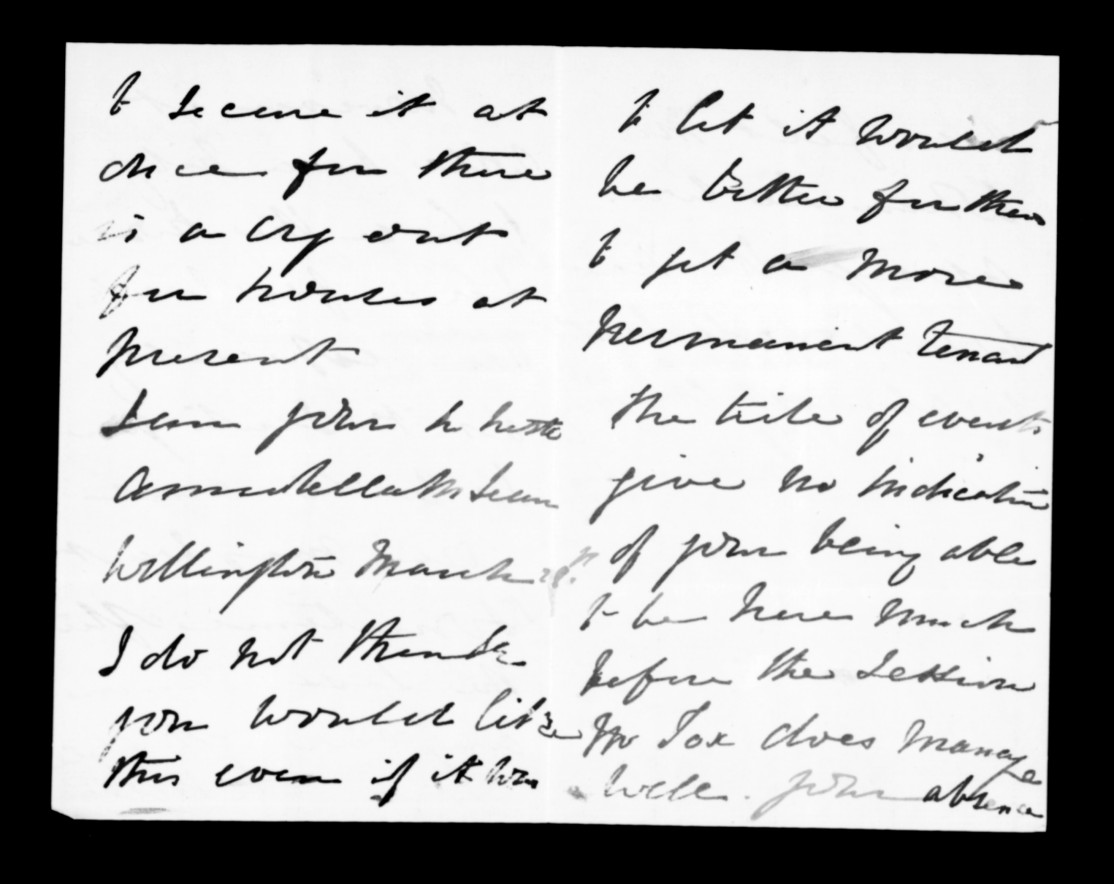 to secure it at
once for there
is a cry out
for houses at
present
Ever yours in haste
Annabella McLean
Wellington March 28th
I do not think
you would like
this even if it was
to let it would
be better for them
to get a more
permanent tenant
the tide of events
give no indication
of your being able
to be here much
before the Session
Mr Fox does manage
well. your absence